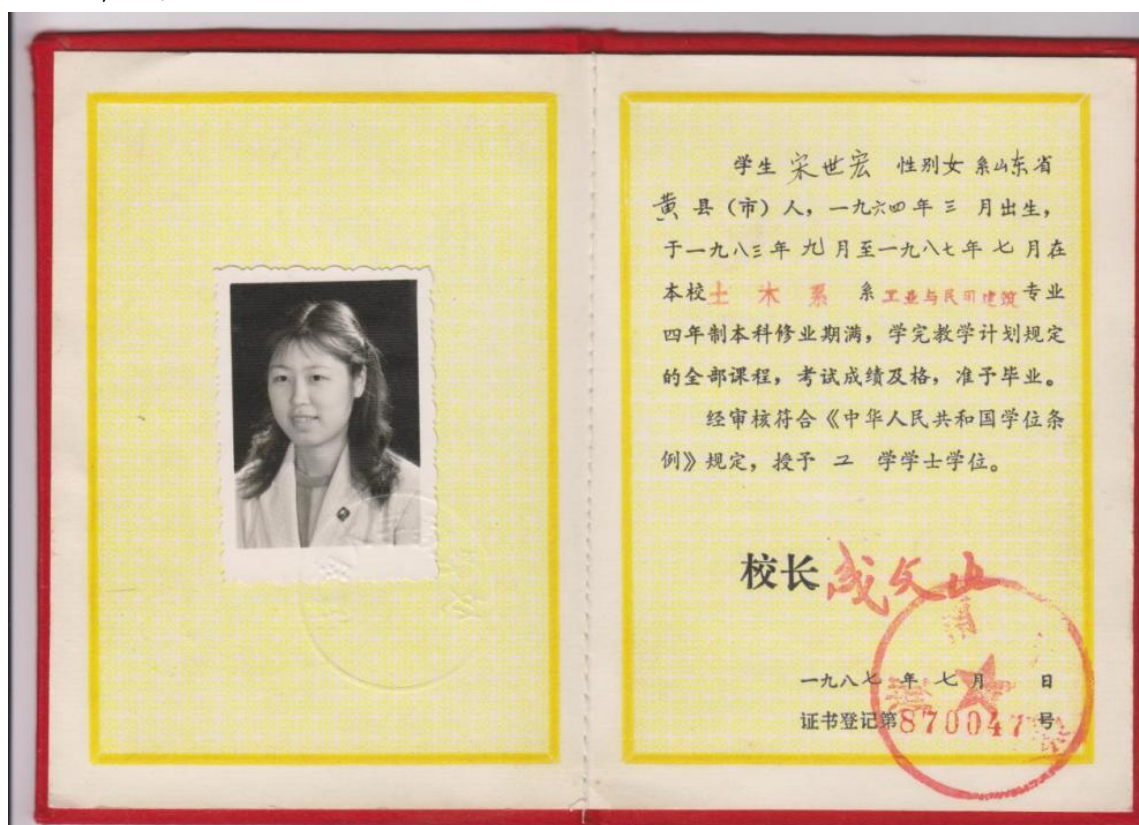 学生 宋世宏 性别女 系山东省
黄 县（市）人，一九六四年 三 月出生，
于一九八三年 九 月至一九八七年 七 月在
本校 土 木 系 系 工业与民用建筑 专业
四年制本科修业期满，学完教学计划规定
的全部课程，考试成绩及格，准予毕业。
经审核符合《中华人民共和国学位条
例》规定，授予 工 学学士学位。
校长 成文山
一九八七 年 七 月 日
证书登记第870047号